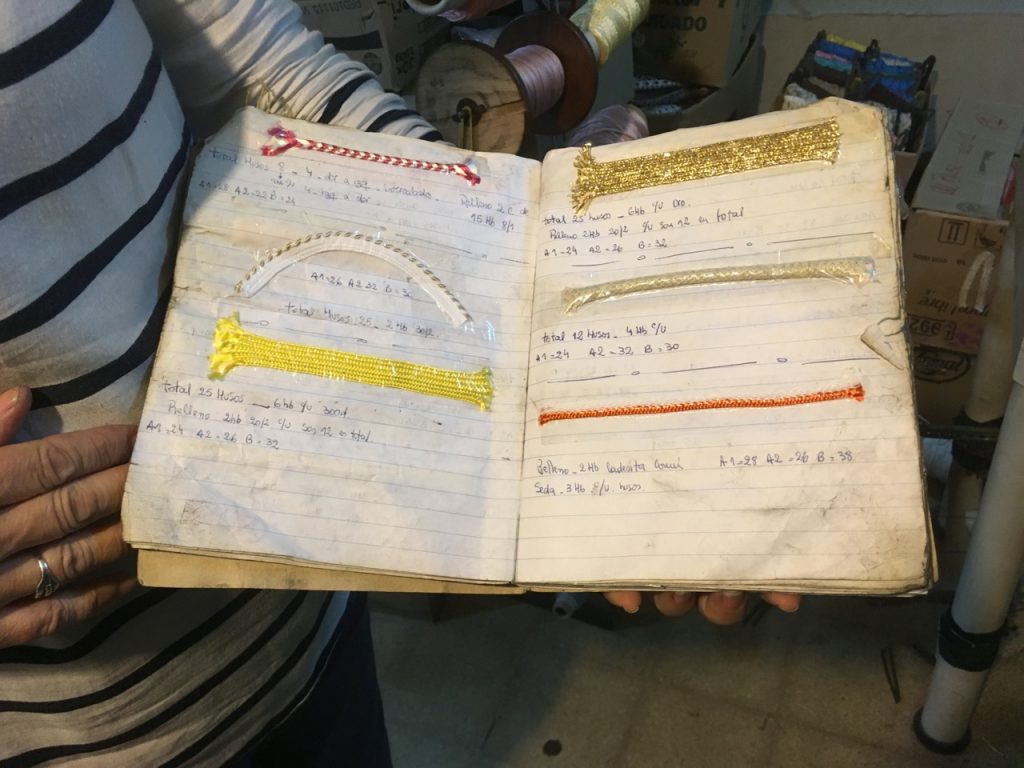 Total Husos 8 - 4 - dr a izq - intercalados -
4 - izq a dor.
A1=28 A2=22 B=24
Relleno 2 C de
15 Hb 8/1
A1=26 A2 32 B=30
Total Husos: 25 - 2 Hb 30/2.
Total 25 Husos — 6 hb c/u
Relleno 2 hb 20/2 c/u son 12 en total
A1=24 A2=26 B=32
total 25 husos - 6 hb c/u oro.
Relleno 2 Hb 20/2 c/u son 12 en total
A1=24 A2=26 B=32
total 12 Husos - 4 Hb c/u
A1=24 A2=32 B=30
Relleno - 2 Hb A1=28 A2=26 B=38
Seda - 3 Hb c/u husos